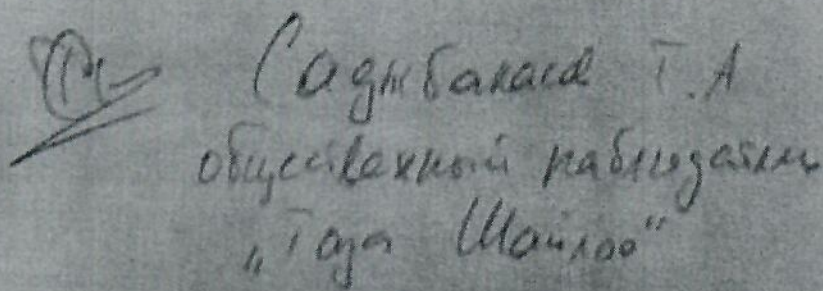 Саджбакаса Т.А
общественный наблюдатель
„Таза Шайлоо“